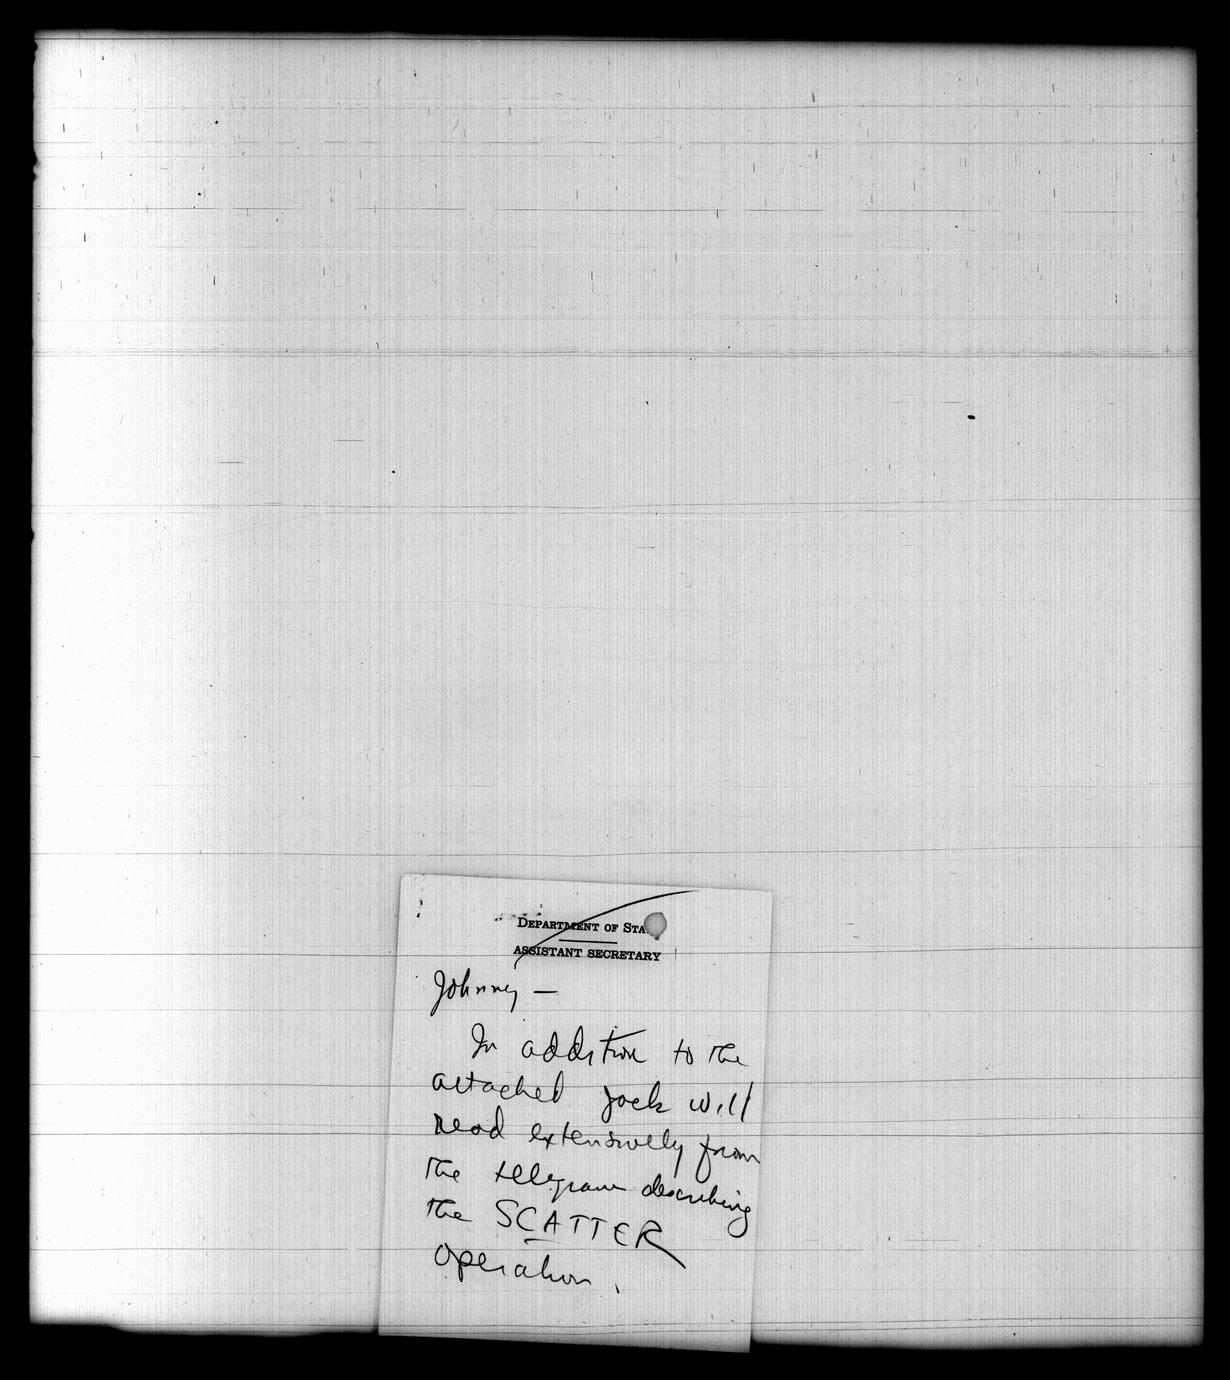 DEPARTMENT OF STA
ASSISTANT SECRETARY
Johnny —
In addition to the
attached Jack will
read extensively from
the telegram describing
the SCATTER
operation.